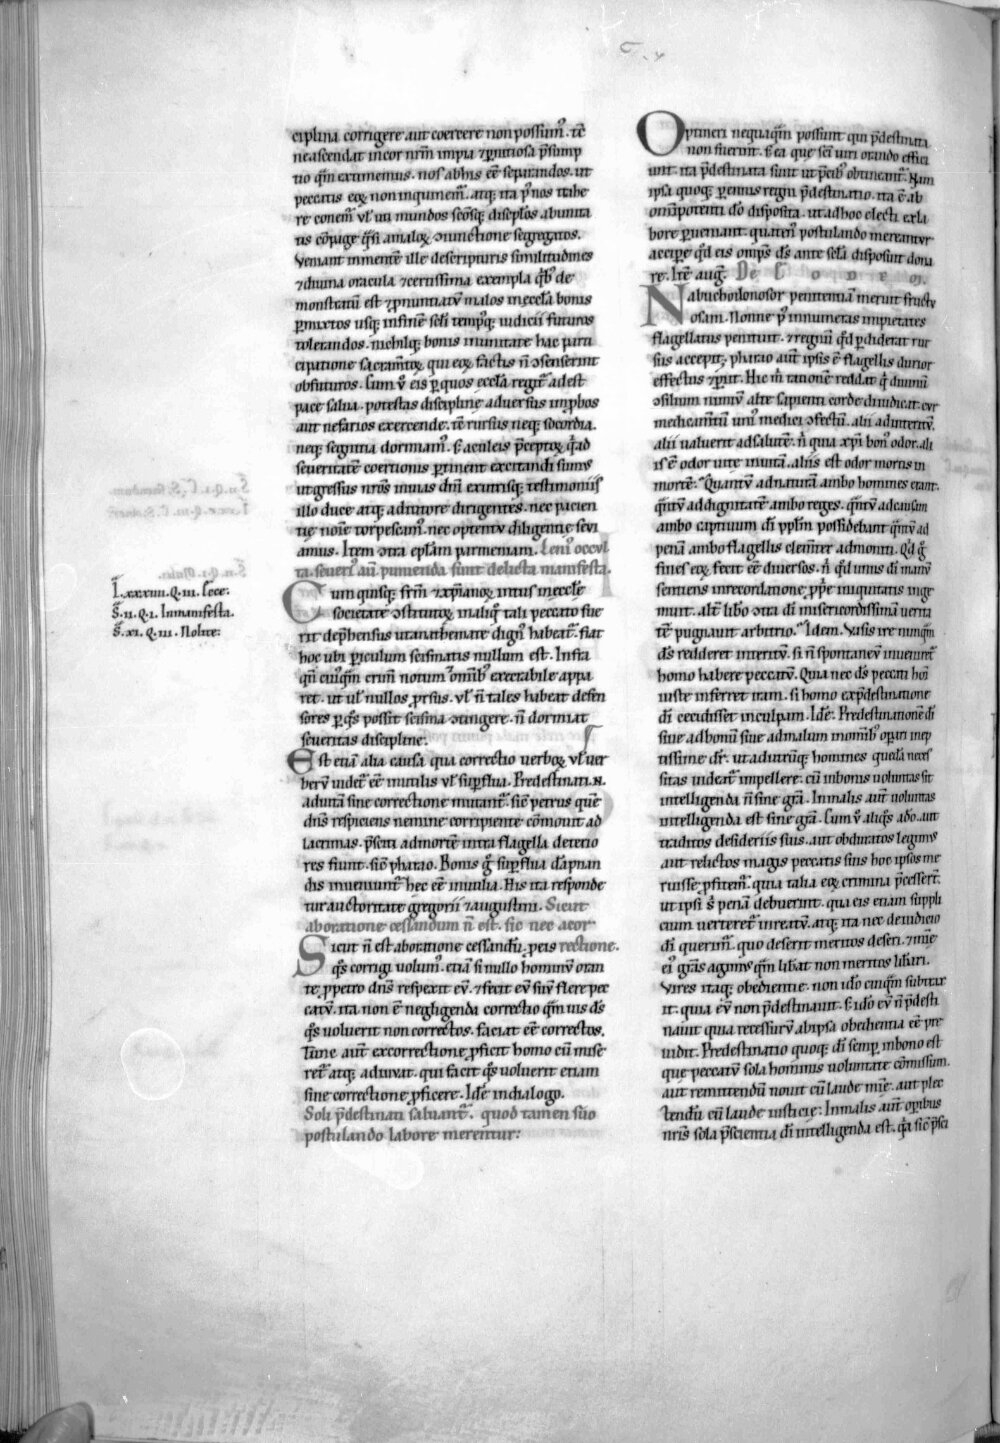 ciplina corrigere aut coercere non possumꝰ. ne
ne ascendat in cor nr̄m impia ⁊ ꝑnitiosa p̄sump
tio qͣm extimemus. nos ab his eē separandos. ut
peccatis eoꝝ non inquinemr̄. atqꝫ ita p̄ nos trahe
re conemr̄ ul̓ uĩ mundos sc̄osqꝫ discipl̓os ab unita
tis cōpage qͣsi a maloꝝ ↄiunctione segregatos.
Veniant in mentē ille de scripturis similitudines
⁊ diuina oracula ⁊ certissima exempla qͥbꝰ de
monstratū est ⁊ ꝓnuntiatū malos in eccl̓a bonis
ꝑmixtos usqꝫ in finē sc̄li tempꝰqꝫ iudicii futuros
tolerandos. nichilqꝫ bonis in unitate hac parti
cipatione sacramtoꝝ qui eoꝝ factis n̄ ↄsenserint
obfuturos. Cum ū eis ꝑ quos eccl̓a regitr̄ adest
pace salua. potestas discipline aduersus improbos
aut nefarios exercende. tē rursus neqꝫ socordia.
neqꝫ segnitia dormiamꝰ. s; aculeis p̄ceptoꝝ q̄ ad
seueritatē coertionis ꝑtinent excitandi sumꝰ
ut gressus nr̄os in uias dn̄i ex utrisqꝫ testimoniis
illo duce atqꝫ adiutore dirigentes. nec pacien
tie noīe torpescamꝰ. nec optentu diligentie seui
amus. Item ↄtra epl̓am parmeniam. Leniꝰ occul
ta. seuerꝰ aū. punienda sunt delicta manifesta.
Cum quisqꝫ frm̄ ⁊ xp̄ianoꝝ intus in eccl̓e
societate ↄstitutoꝝ in aliqͦ tali peccato fue
rit dep̄hensus ut anathemate dignꝰ habeatr̄. fiat
hoc ubi ꝑiculum scismatis nullum est. Infra
qn̄ cuiꝰqͣm crimē notum ⁊ om̄ibꝰ execrabile appa
ret. ut ul̓ nullos ꝓrsus. ul̓ n̄ tales habeat defen
sores ꝑ qͦs possit scisma ↄtingere. n̄ dormiat
seueritas discipline.
Est etiā alia causa qua correctio uerboꝝ ul̓ uer
berū uidetr̄ eē inutilis ul̓ suꝑflua. Predestinati .n.
ad uitā sine correctione mutantr̄. sic̄ petrus quē
dn̄s respiciens nemine corripiente cōmouit ad
lacrimas. p̄sciti ad mortē intra flagella deterio
res fiunt. sic̄ pharao. Bonis gͦ suꝑflua. dāpnan
dis inueniuntr̄ hec eē inutilia. His ita responde
tur auctoritate gregorii ⁊ augustini. Sicut
ab oratione cessandum n̄ est. sic nec a cor
Sicut n̄ est ab oratione cessandū. ꝓ eis rectione.
qͦs corrigi uolumꝰ. etiā si nullo hominū oran
te ꝓ petro dn̄s respexit eū. ⁊ fecit eū suū flere pec
catū. ita non ē negligenda correctio qͣmuis dꝰs
qͦs uoluerit non correctos. faciat eē correctos.
Tunc aut̄ ex correctione ꝓficit homo cū mise
retr̄ atqꝫ adiuuat. qui facit qͦs uoluerit etiam
sine correctione ꝓficere. Idē in dialogo.
Soli p̄destinati saluantr̄. quod tamen suo
postulando labore merentur:
Optineri nequaqͣm possunt qui p̄destinata
non fuerint. s; ea que sc̄i uiri orando effici
unt. ita p̄destinata sunt ut p̄cibꝰ obtineantr̄. Nam
ipsa quoqꝫ ꝑennis regni p̄destinatio. ita ē ab
om̄ipotenti dō disposita. ut ad hoc electi ex la
bore ꝑueniant. quatenꝰ postulando mereantur
accipere qͥd eis om̄ps dꝰs ante sc̄la disposuit dona
re. Itē aug.
Nabuchodonosor penitentiā meruit fructu
osam. Nonne p̄ innumeras impietates
flagellatus penituit. ⁊ regnū qͦd ꝑdiderat rur
sus accepit; pharao aut̄ ipsis ē flagellis durior
effectus ⁊ ꝑiit. Hic m̄ rationē reddat qͥ diuinū
ↄsilium nimiū alte sapienti corde diiudicat. cur
medicamtū unīꝰ medici ↄfectū. alii ad interitū.
alii ualuerit ad salutē. n̄ quia xp̄i bonꝰ odor. ali
is ē odor uite in uitā. aliis est odor mortis in
mortē. Quantū ad naturā ambo homines erant.
qͣntū ad dignitatē ambo reges. qͣntū ad causam
ambo captiuum dī pplm̄ possidebant qͣntū ad
penā ambo flagellis clemtēr admoniti. Qͥd gͦ
fines eoꝝ fecit eē diuersos. n̄ qͥd unus dī manū
sentiens in recordatione ꝓprie iniquitatis inge
muit. altr̄ libo ↄtra dī misericordissimā uerita
tē pugnauit arbitrio. Idem. Vasis ire nunqͣm
dꝰs redderet interitū. si n̄ spontaneū inueniretr̄
homo habere peccatū. Quia nec dꝰs peccanti hoī
iuste inferret iram. si homo ex p̄destinatione
dī cecidisset in culpam. Idē. Predestinationē dī
siue ad bonū siue ad malum in om̄ibꝰ oꝑari inep
tissime dr̄. ut ad utrūqꝫ homines quedā neces
sitas uideatr̄ impellere. cū in bonis uoluntas sit
intelligenda n̄ sine grā. In malis aut̄ uoluntas
intelligenda est sine grā. Cum ū aliqͦs a dō. aut
traditos desideriis suis. aut obduratos legimus
aut relictos magis peccatis suis hoc ipsos me
ruisse ꝓfitemr̄. quia talia eoꝝ crimina p̄cesserr̄.
ut ipsi s; penā debuerint. qua eis etiam suppli
cium uerteretr̄ in reatū. atqꝫ ita nec de iudicio
dī querimr̄. quo deserit meritos deseri. ⁊ mīe
eiꝰ grās agimus qͣm liberat non meritos liberi.
Vires itaqꝫ obedientie. non ideo cuiqͣm subtrax
it. quia eū non p̄destinauit. s; ideo eū n̄ p̄desti
nauit quia recessurū ab ipsa obedientia eē pre
uidit. Predestinatio quoqꝫ dī semp̄ in bono est
que peccatū sola hominis uoluntate cōmissum.
aut remittendū nouit cū laude mīe. aut plec
tendū cū laude iusticie: In malis aut̄ oꝑibus
nr̄is sola p̄scientia dī intelligenda est. qͥa sic̄ p̄sci
I. xxxiii. Q. iii. Ecce.
S̄. ii. Q. i. In manifesta.
S̄. xi. Q. iii. Nolite: